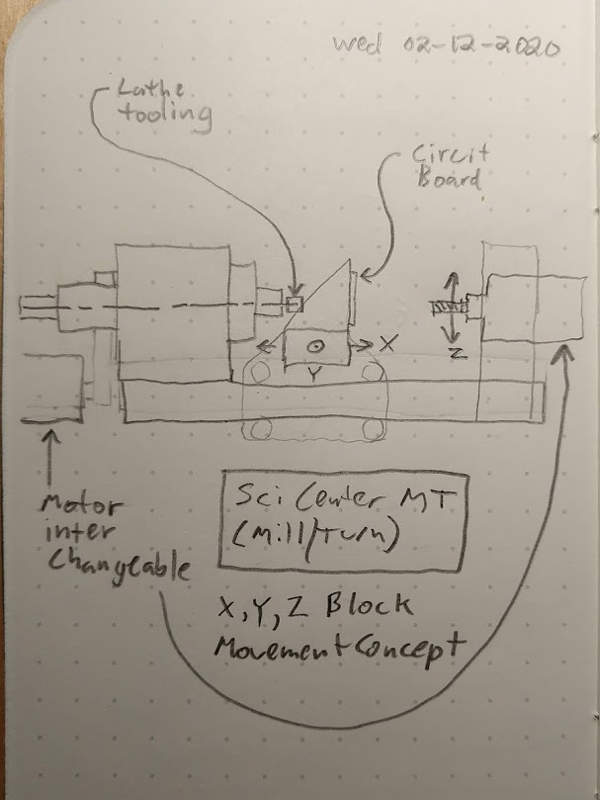 wed 02-12-2020
Lathe
tooling
Circit
Board
X
Y
Z
Motor
inter
Changeable
Sci Center MT
(Mill/Turn)
X,Y,Z Block
Movement Concept